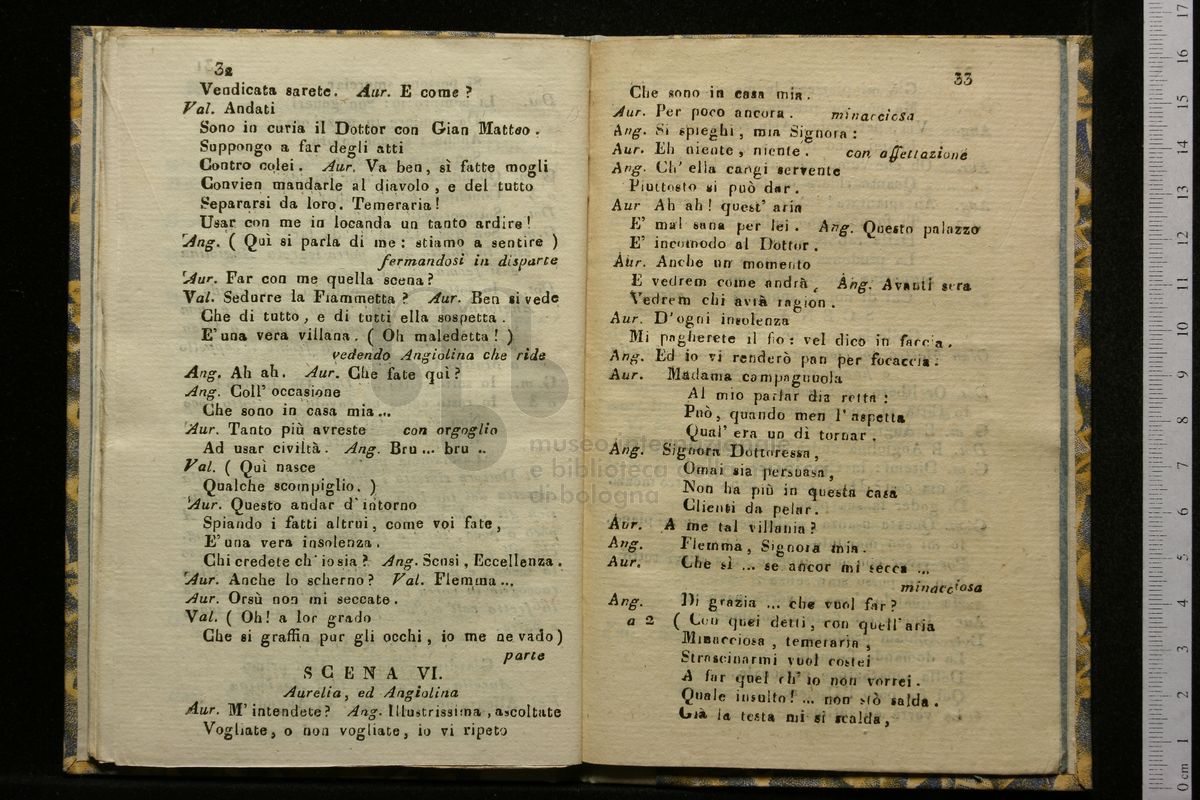 32
Vendicata sarete. Aur. E come ?
Val. Andati
Sono in curia il Dottor con Gian Matteo .
Suppongo a far degli atti
Contro colei . Aur. Va ben, sì fatte mogli
Convien mandarle al diavolo , e del tutto
Separarsi da loro. Temeraria !
Usar con me in locanda un tanto ardire !
Ang. ( Quì si parla di me : stiamo a sentire )
fermandosi in disparte
Aur. Far con me quella scena ?
Val. Sedurre la Fiammetta ? Aur. Ben si vede
Che di tutto , e di tutti ella sospetta .
E' una vera villana . ( Oh maledetta ! )
vedendo Angiolina che ride
Ang. Ah ah. Aur. Che fate quì ?
Ang. Coll' occasione
Che sono in casa mia ...
Aur. Tanto più avreste con orgoglio
Ad usar civiltà . Ang. Bru ... bru ..
Val. ( Quì nasce
Qualche scompiglio. )
Aur. Questo andar d' intorno
Spiando i fatti altrui , come voi fate ,
E' una vera insolenza .
Chi credete ch' io sia ? Ang. Scusi , Eccellenza .
Aur. Anche lo scherno ? Val. Flemma ...
Aur. Orsù non mi seccate .
Val. ( Oh ! a lor grado
Che si graffin pur gli occhi , io me ne vado )
parte
SCENA VI.
Aurelia, ed Angiolina
Aur. M' intendete ? Ang. Illustrissima , ascoltate
Vogliate , o non vogliate , io vi ripeto
33
Che sono in casa mia .
Aur. Per poco ancora . minacciosa
Ang. Si spieghi , mia Signora :
Aur. Eh niente , niente . con affettazione
Ang. Ch' ella cangi servente
Piuttosto si può dar .
Aur Ah ah ! quest' aria
E' mal sana per lei . Ang. Questo palazzo
E' incomodo al Dottor .
Aur. Anche un momento
E vedrem come andrà , Ang. Avanti sera
Vedrem chi avrà ragion .
Aur. D' ogni insolenza
Mi pagherete il fio : vel dico in faccia .
Ang. Ed io vi renderò pan per focaccia .
Aur. Madama campagnuola
Al mio parlar dia retta :
Può , quando men l' aspetta
Qual' era un dì tornar .
Ang. Signora Dottoressa ,
Omai sia persuasa ,
Non ha più in questa casa
Clienti da pelar .
Aur. A me tal villania ?
Ang. Flemma , Signora mia .
Aur. Che sì ... se ancor mi secca ...
minacciosa
Ang. Di grazia ... che vuol far ?
a 2 ( Con quei detti , con quell' aria
Minacciosa , temeraria ,
Strascinarmi vuol costei
A far quel ch' io non vorrei .
Quale insulto ! ... non stò salda .
Già la testa mi si scalda ,
museo internazionale
e biblioteca
di bologna
17
16
15
14
13
12
11
10
9
8
7
6
5
4
3
2
1
0 cm